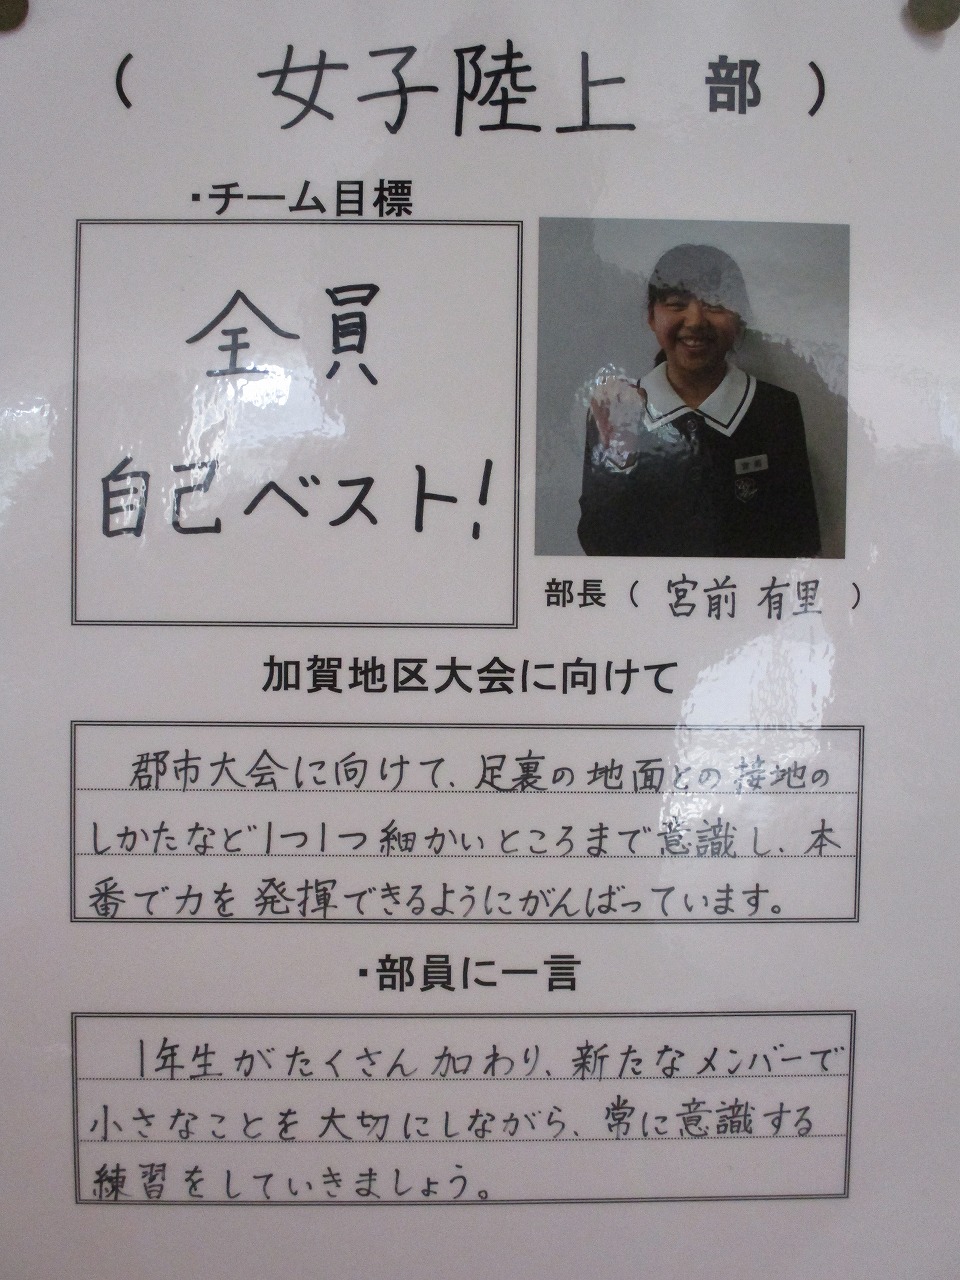 ( 女子陸上 部 )
・チーム目標
全員
自己ベスト!
部長 ( 宮前 有里 )
加賀地区大会に向けて
郡市大会に向けて、足裏の地面との接地の
しかたなど1つ1つ細かいところまで意識し、本
番で力を発揮できるようにがんばっています。
・部員に一言
1年生がたくさん加わり、新たなメンバーで
小さなことを大切にしながら、常に意識する
練習をしていきましょう。